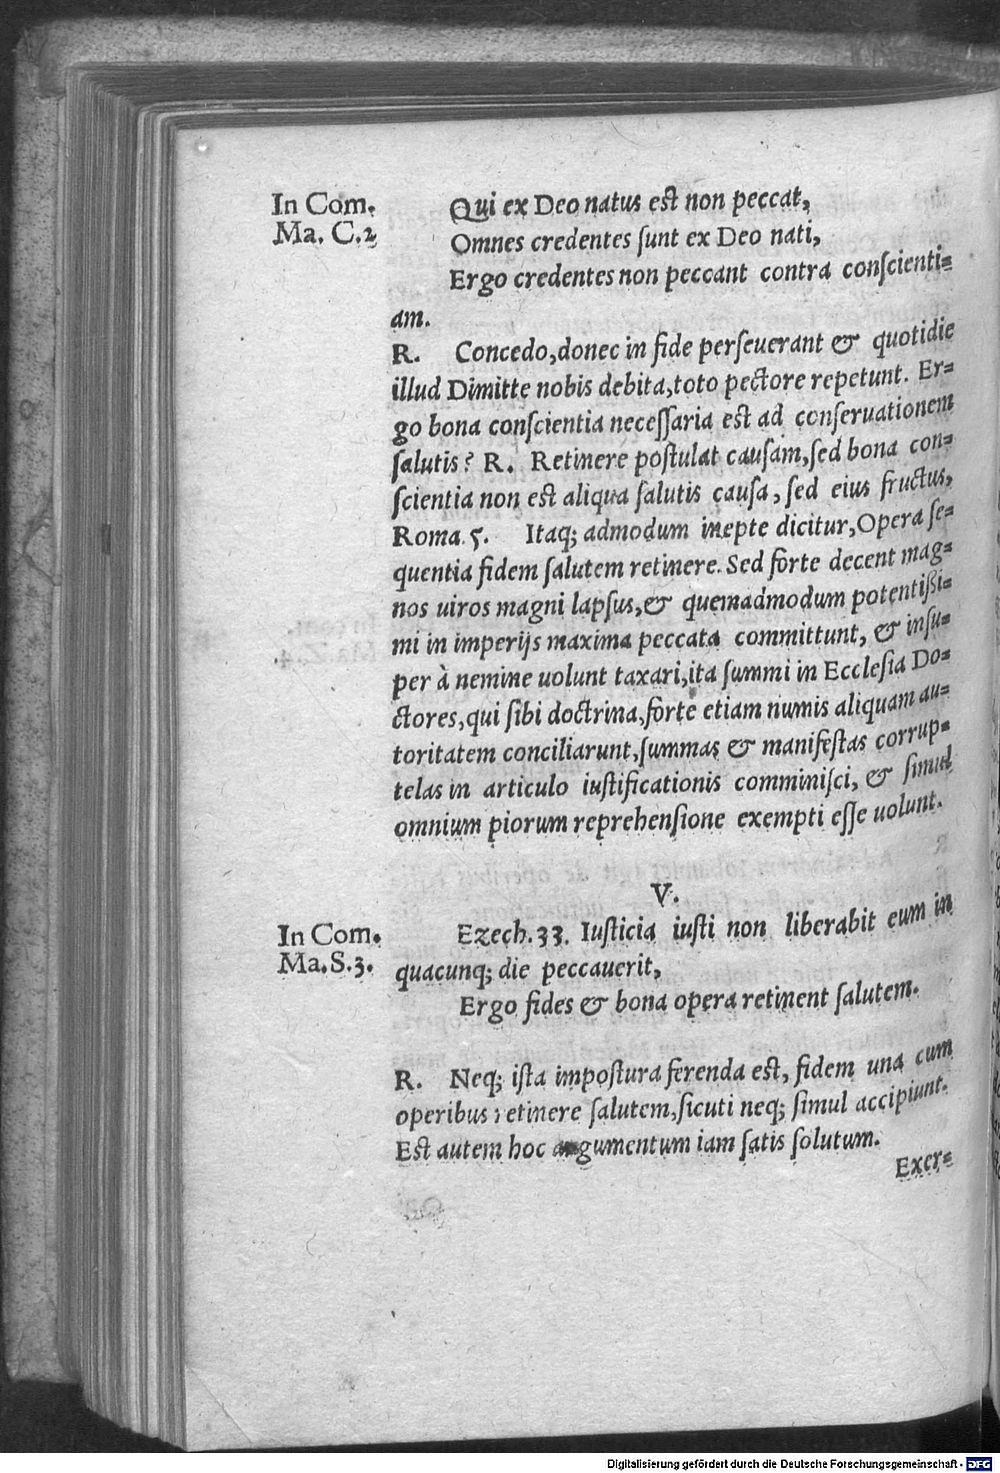 In Com.
Ma. C.2
Qui ex Deo natus est non peccat,
Omnes credentes ſunt ex Deo nati,
Ergo credentes non peccant contra conſcienti-
am.
R. Concedo, donec in fide perſeuerant & quotidie
illud Dimitte nobis debita, toto pectore repetunt. Er-
go bona conſcientia neceſſaria est ad conſeruationem
ſalutis? R. Retinere poſtulat cauſam, ſed bona con-
ſcientia non eſt aliqua ſalutis cauſa, ſed eius fructus,
Roma. 5. Itaq; admodum inepte dicitur, Opera ſe-
quentia fidem ſalutem retinere. Sed forte decent mag-
nos uiros magni lapſus, & quemadmodum potentiſsi-
mi in imperijs maxima peccata committunt, & inſu-
per à nemine uolunt taxari, ita ſummi in Eccleſia Do-
ctores, qui ſibi doctrina, forte etiam numis aliquam au-
toritatem conciliarunt, ſummas & manifeſtas corrup-
telas in articulo iuſtificationis comminiſci, & ſimul
omnium piorum reprehenſione exempti eſſe uolunt.
V.
In Com.
Ma.S.3.
Ezech. 33. Iuſticia iuſti non liberabit eum in
quacunq; die peccauerit,
Ergo fides & bona opera retinent ſalutem.
R. Neq; iſta impoſtura ferenda eſt, fidem una cum
operibus retinere ſalutem, ſicuti neq; ſimul accipiunt.
Eſt autem hoc argumentum iam ſatis ſolutum.
Exer-
Digitalisierung gefördert durch die Deutsche Forschungsgemeinschaft - DFG